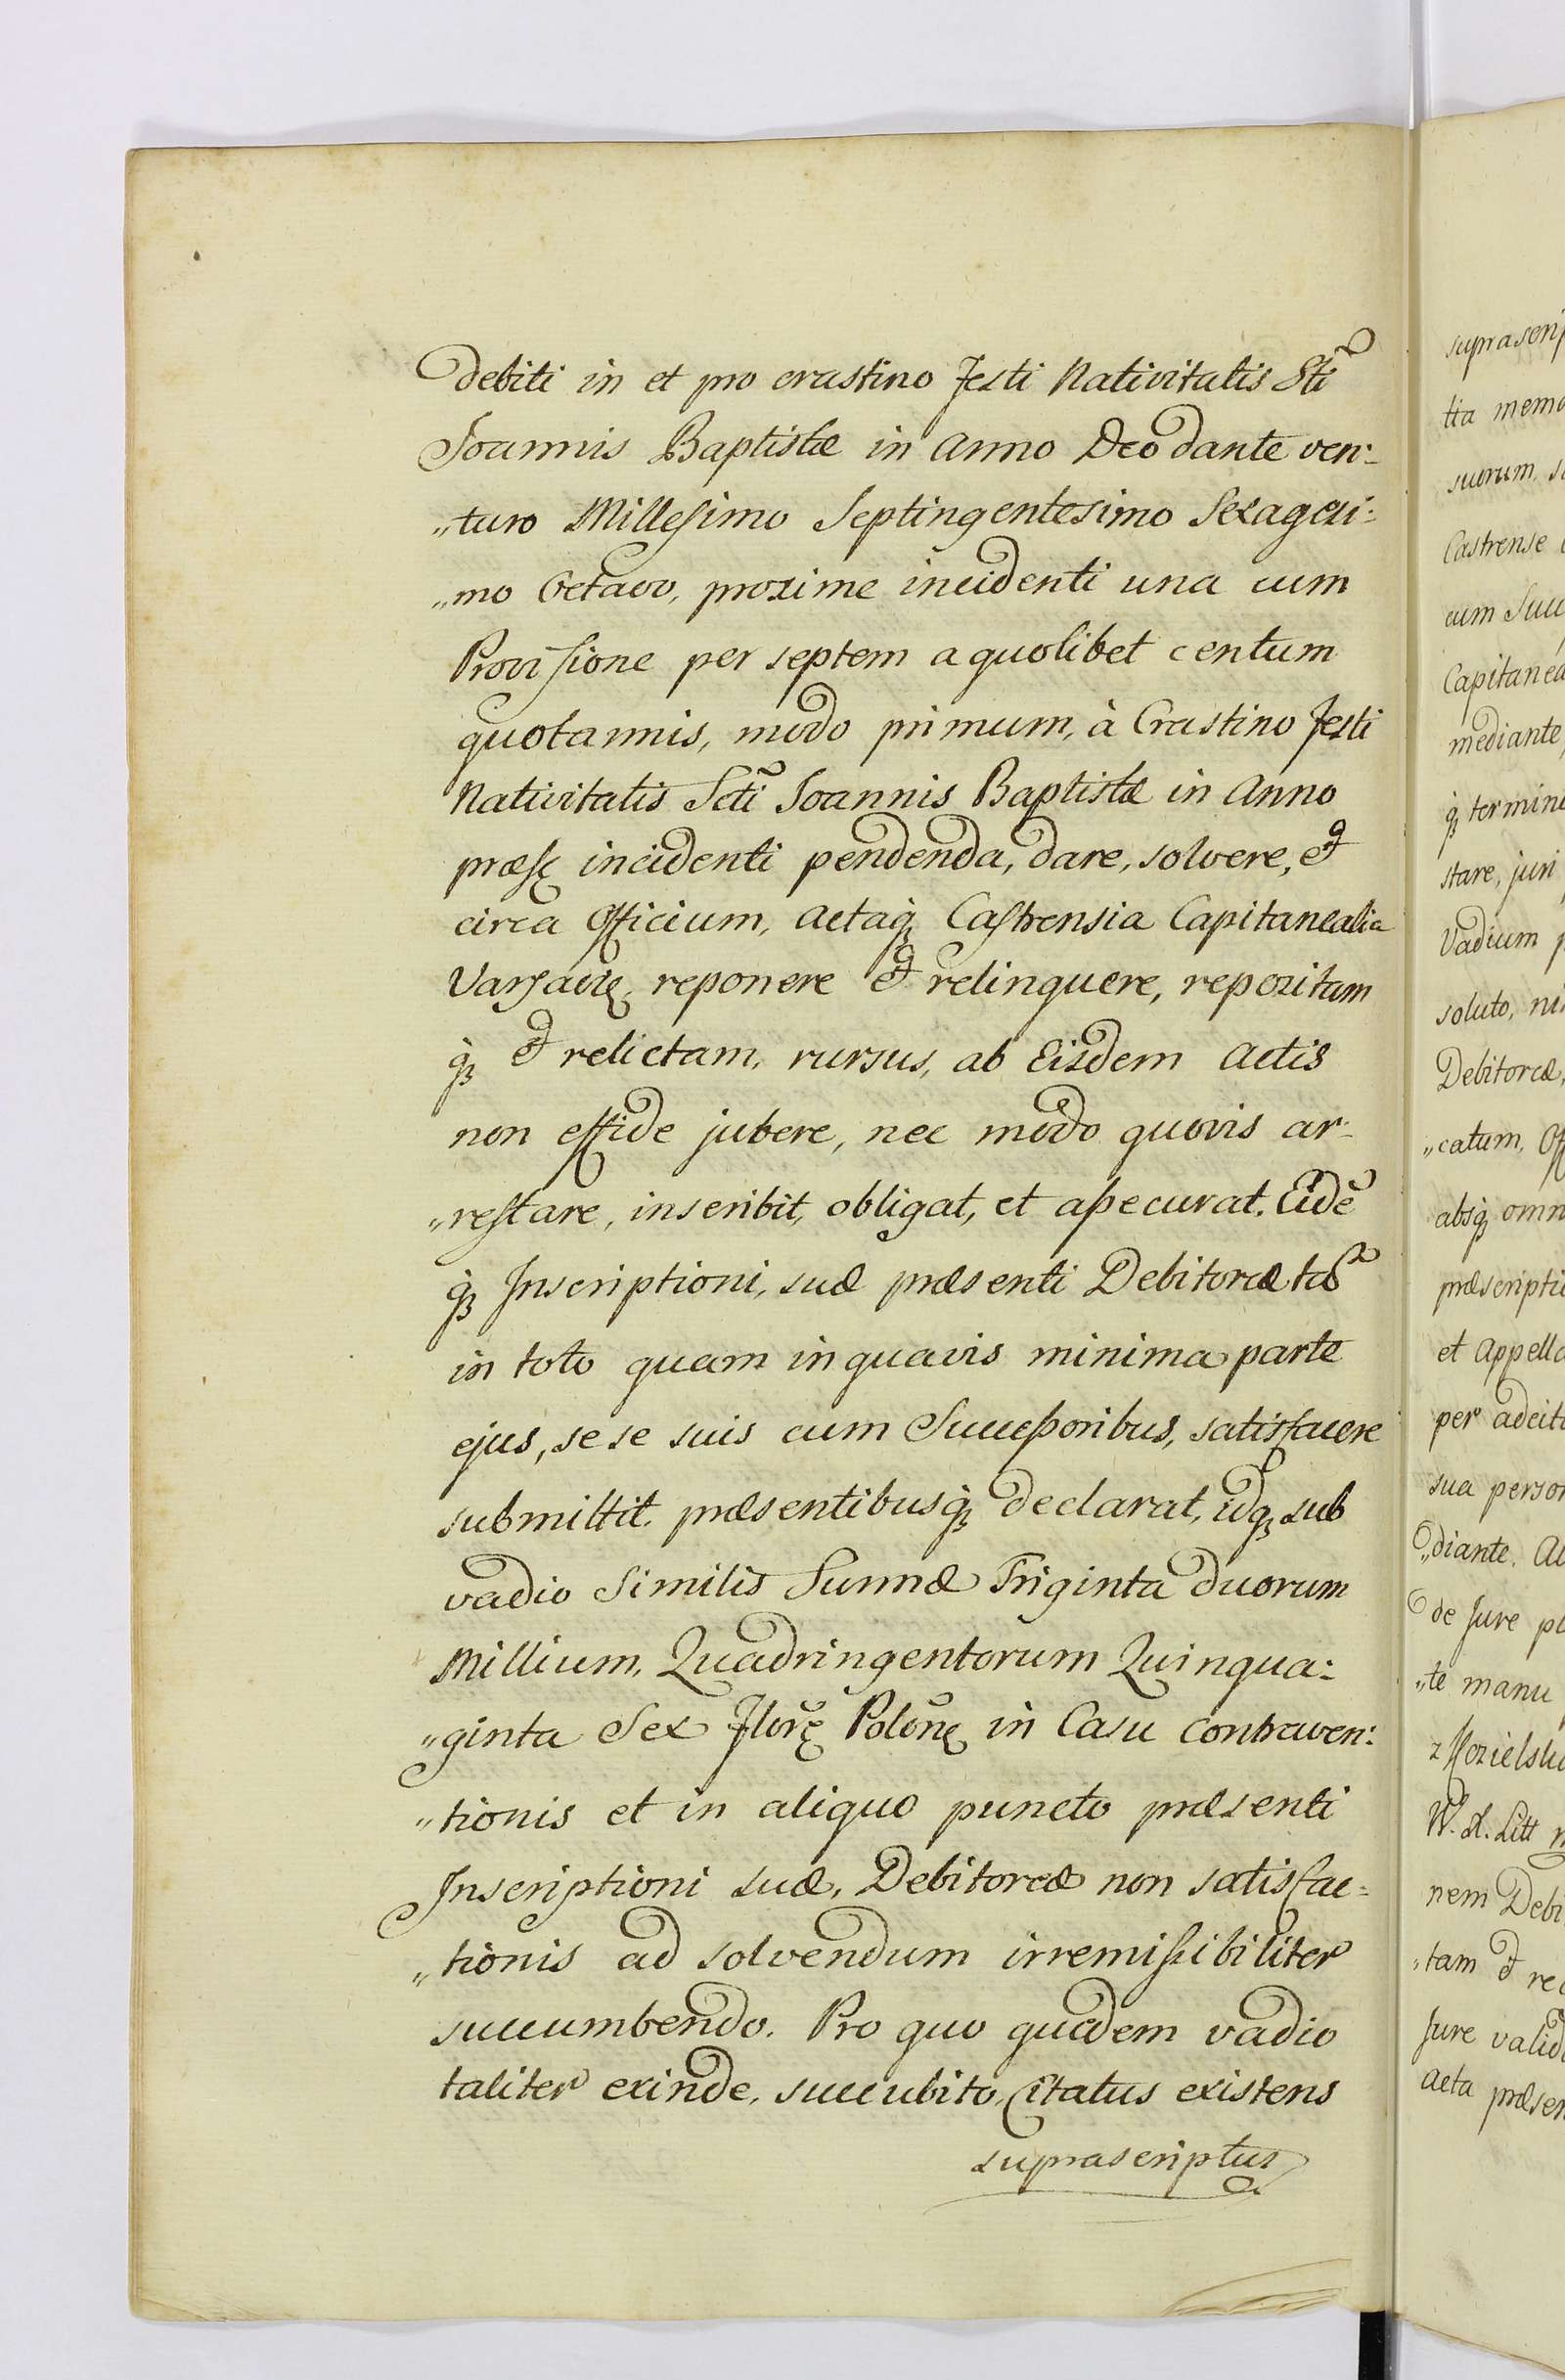 debiti in et pro crastino Festi Nativitatis Sti
Joannis Baptistæ in Anno Deo dante ven:
„turo Millesimo Septingentesimo Sexagesi:
„mo Octavo, proxime incidenti una cum
Provisione per septem a quolibet centum
quotannis, modo primum, à Crastino Festi
Nativitatis Scti Joannis Baptistæ in Anno
præsę incidenti pendenda, dare, solvere, et
circa Officium, Actaq3 Castrensia Capitanealia
Varsavię reponere et relinquere, repositam
q3 et relictam, rursus, ab Eisdem Actis
non effide jubere, nec modo quovis ar:
„restare, inscribit, obligat, et assecurat. Eidē
q3 Inscriptioni, suæ præsenti Debitoreæ tā
in toto quam in quavis minima parte
ejus, se se suis cum Successoribus, satisfacere
submittit. præsentibusq3 declarat, idq3 sub
vadio Similis Summæ Triginta duorum
Millium, Quadringentorum Quinqua:
„ginta Sex Florę Polonę in Casu contraven:
„tionis et in aliquo puncto præsenti
Inscriptioni suæ, Debitoreæ non satisfac=
„tionis ad solvendum irremissibiliter
succumbendo. Pro quo quidem vadio
taliter exinde, succubito, Citatus existens
suprascriptus
suprascrip
tia memo
suorum, s
Castrense
cum Succ
Capitanea
mediante,
q3 termino
stare, juri
Vadium p
soluto, ni
Debitoreæ,
„catum, Off
absq3 omn
præscripti
et Appella
per adcit
sua person
„diante. Ac
de Jure p
„te manu
z Kozielsk
W. X. Litt
nem Debi
„tam et re
Jure valid
Acta præsen